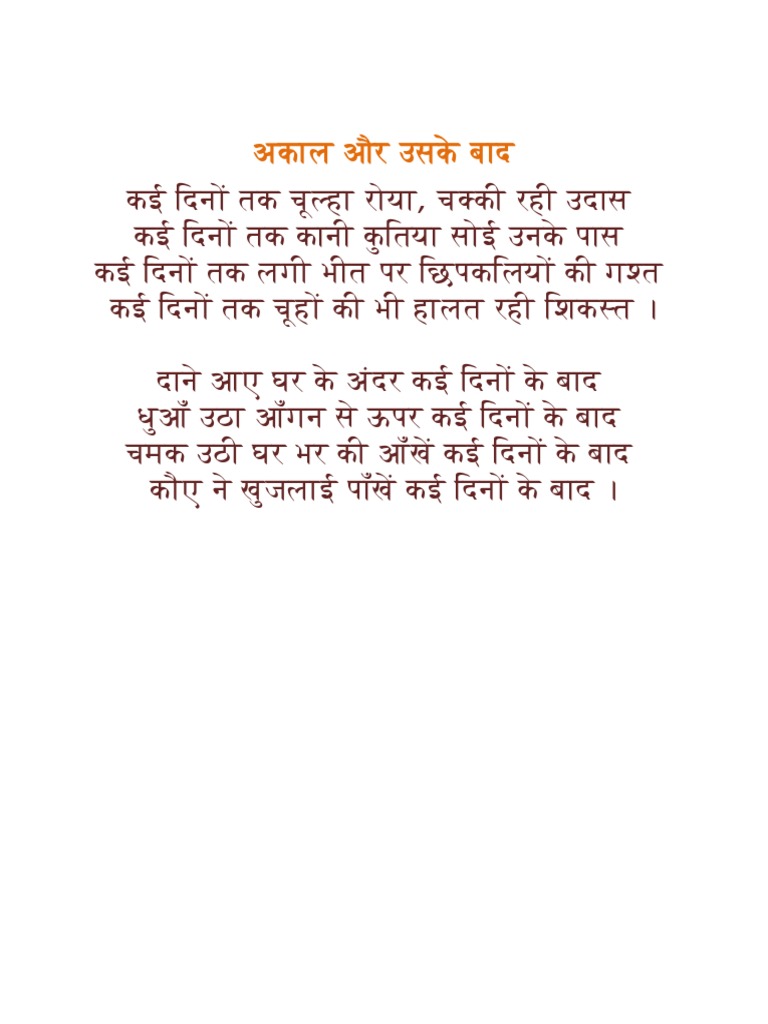 अकाल और उसके बाद
कई दिनों तक चूल्हा रोया, चक्की रही उदास
कई दिनों तक कानी कुतिया सोई उनके पास
कई दिनों तक लगी भीत पर छिपकलियों की गश्त
कई दिनों तक चूहों की भी हालत रही शिकस्त ।
दाने आए घर के अंदर कई दिनों के बाद
धुआँ उठा आँगन से ऊपर कई दिनों के बाद
चमक उठी घर भर की आँखें कई दिनों के बाद
कौए ने खुजलाई पाँखें कई दिनों के बाद ।